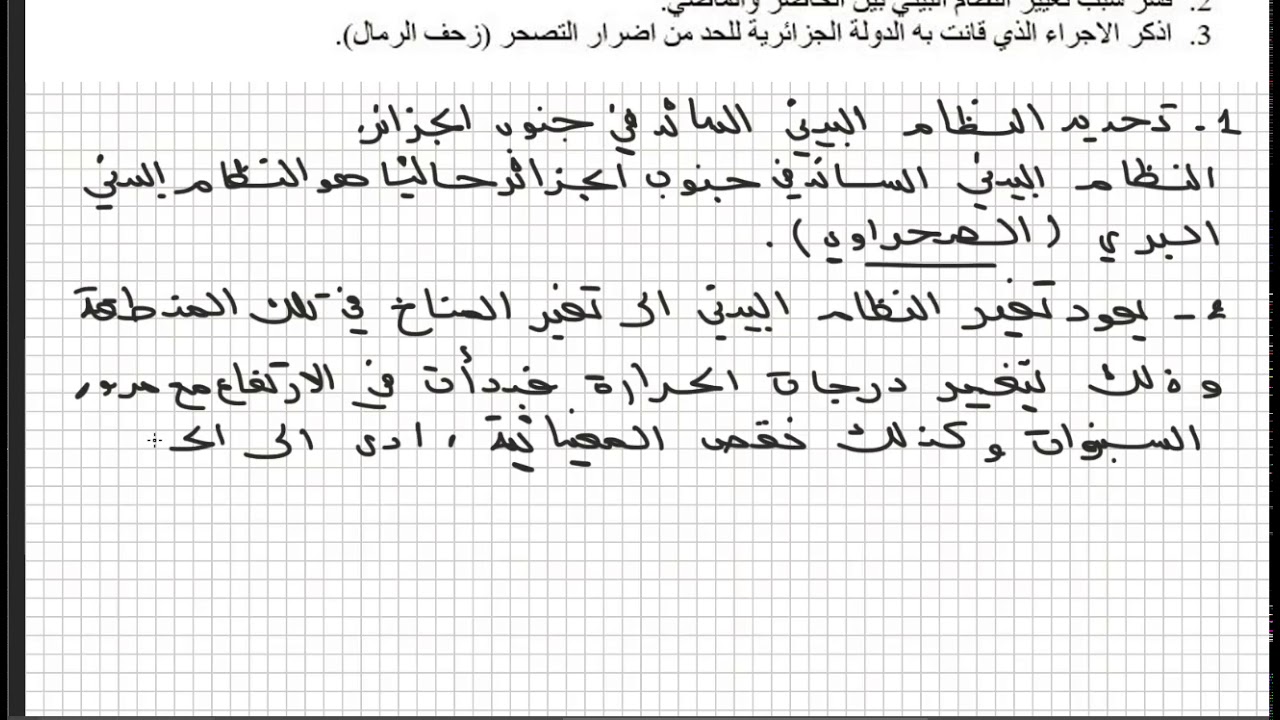 2. فسر سبب تغيير النظام البيئي بين الحاضر والماضي.
3. اذكر الاجراء الذي قانت به الدولة الجزائرية للحد من اضرار التصحر (زحف الرمال).
1. تحديد النظام البيئي السائد في جنوب الجزائر
النظام البيئي السائد في جنوب الجزائر حاليا هو النظام البيئي
البري (الصحراوي).
2- يعود تغير النظام البيئي الى تغير المناخ في تلك المنطقة
وذلك لتغير درجات الحرارة فبدأت في الارتفاع مع مرور
السنوات وكذلك نقص المغياثية، ادى الى الحـ